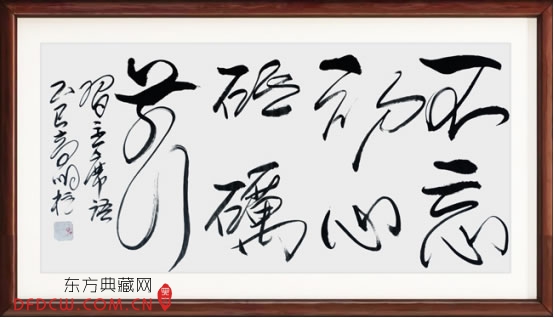 不忘
初心
砥礪
前行
習主席語
东方典藏网
DFDCW.COM.CN